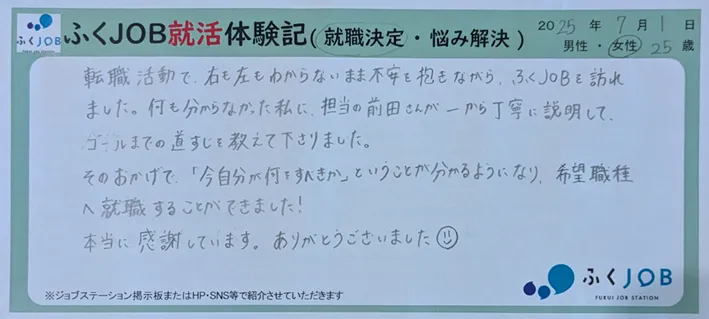 ふくJOB
ふくJOB就活体験記(就職決定・悩み解決)
2025年7月1日
男性・女性 25歳
転職活動で、右も左もわからないまま不安を抱きながら、ふくJOBを訪れ
ました。何も分からなかった私に、担当の前田さんが一から丁寧に説明して、
ゴールまでの道すじを教えて下さりました。
そのおかげで、「今自分が何をすべきか」ということが分かるようになり、希望職種
へ就職することができました!
本当に感謝しています。ありがとうございました
※ジョブステーション掲示板またはHP・SNS等で紹介させていただきます
ふくJOB
FUKUI JOB STATION